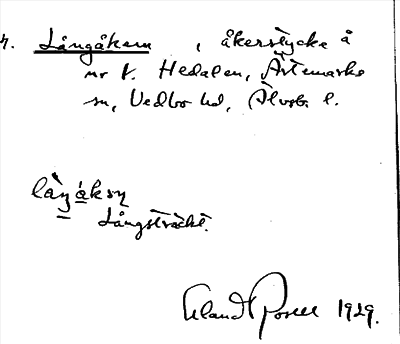 4. Långåkern, åkerstycke å
nr 1. Hedalen, Ärtemarks
sn, Vedbo hd, Älvsb. l.
långåkṇ
Långsträckt.
Erland Rosell 1929.